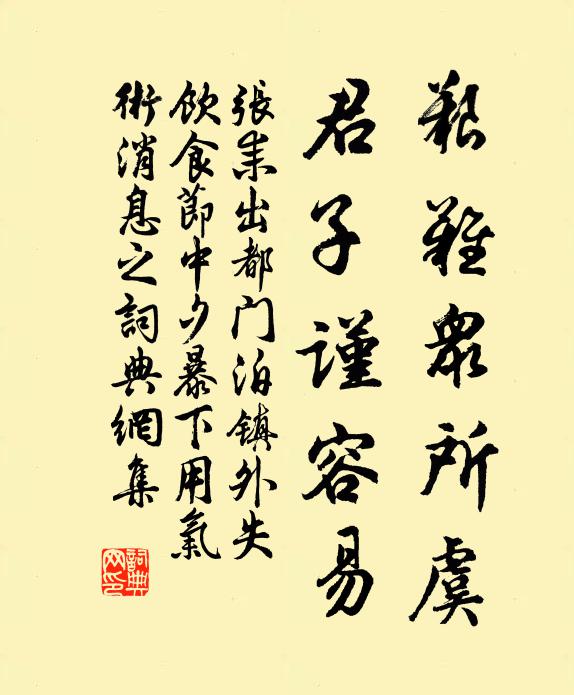 艱難衆所虞
君子謹容易
張耒出都門泊鎮外失
飲食節中夕暴下用氣
術消息之詞典網集
詞典網印